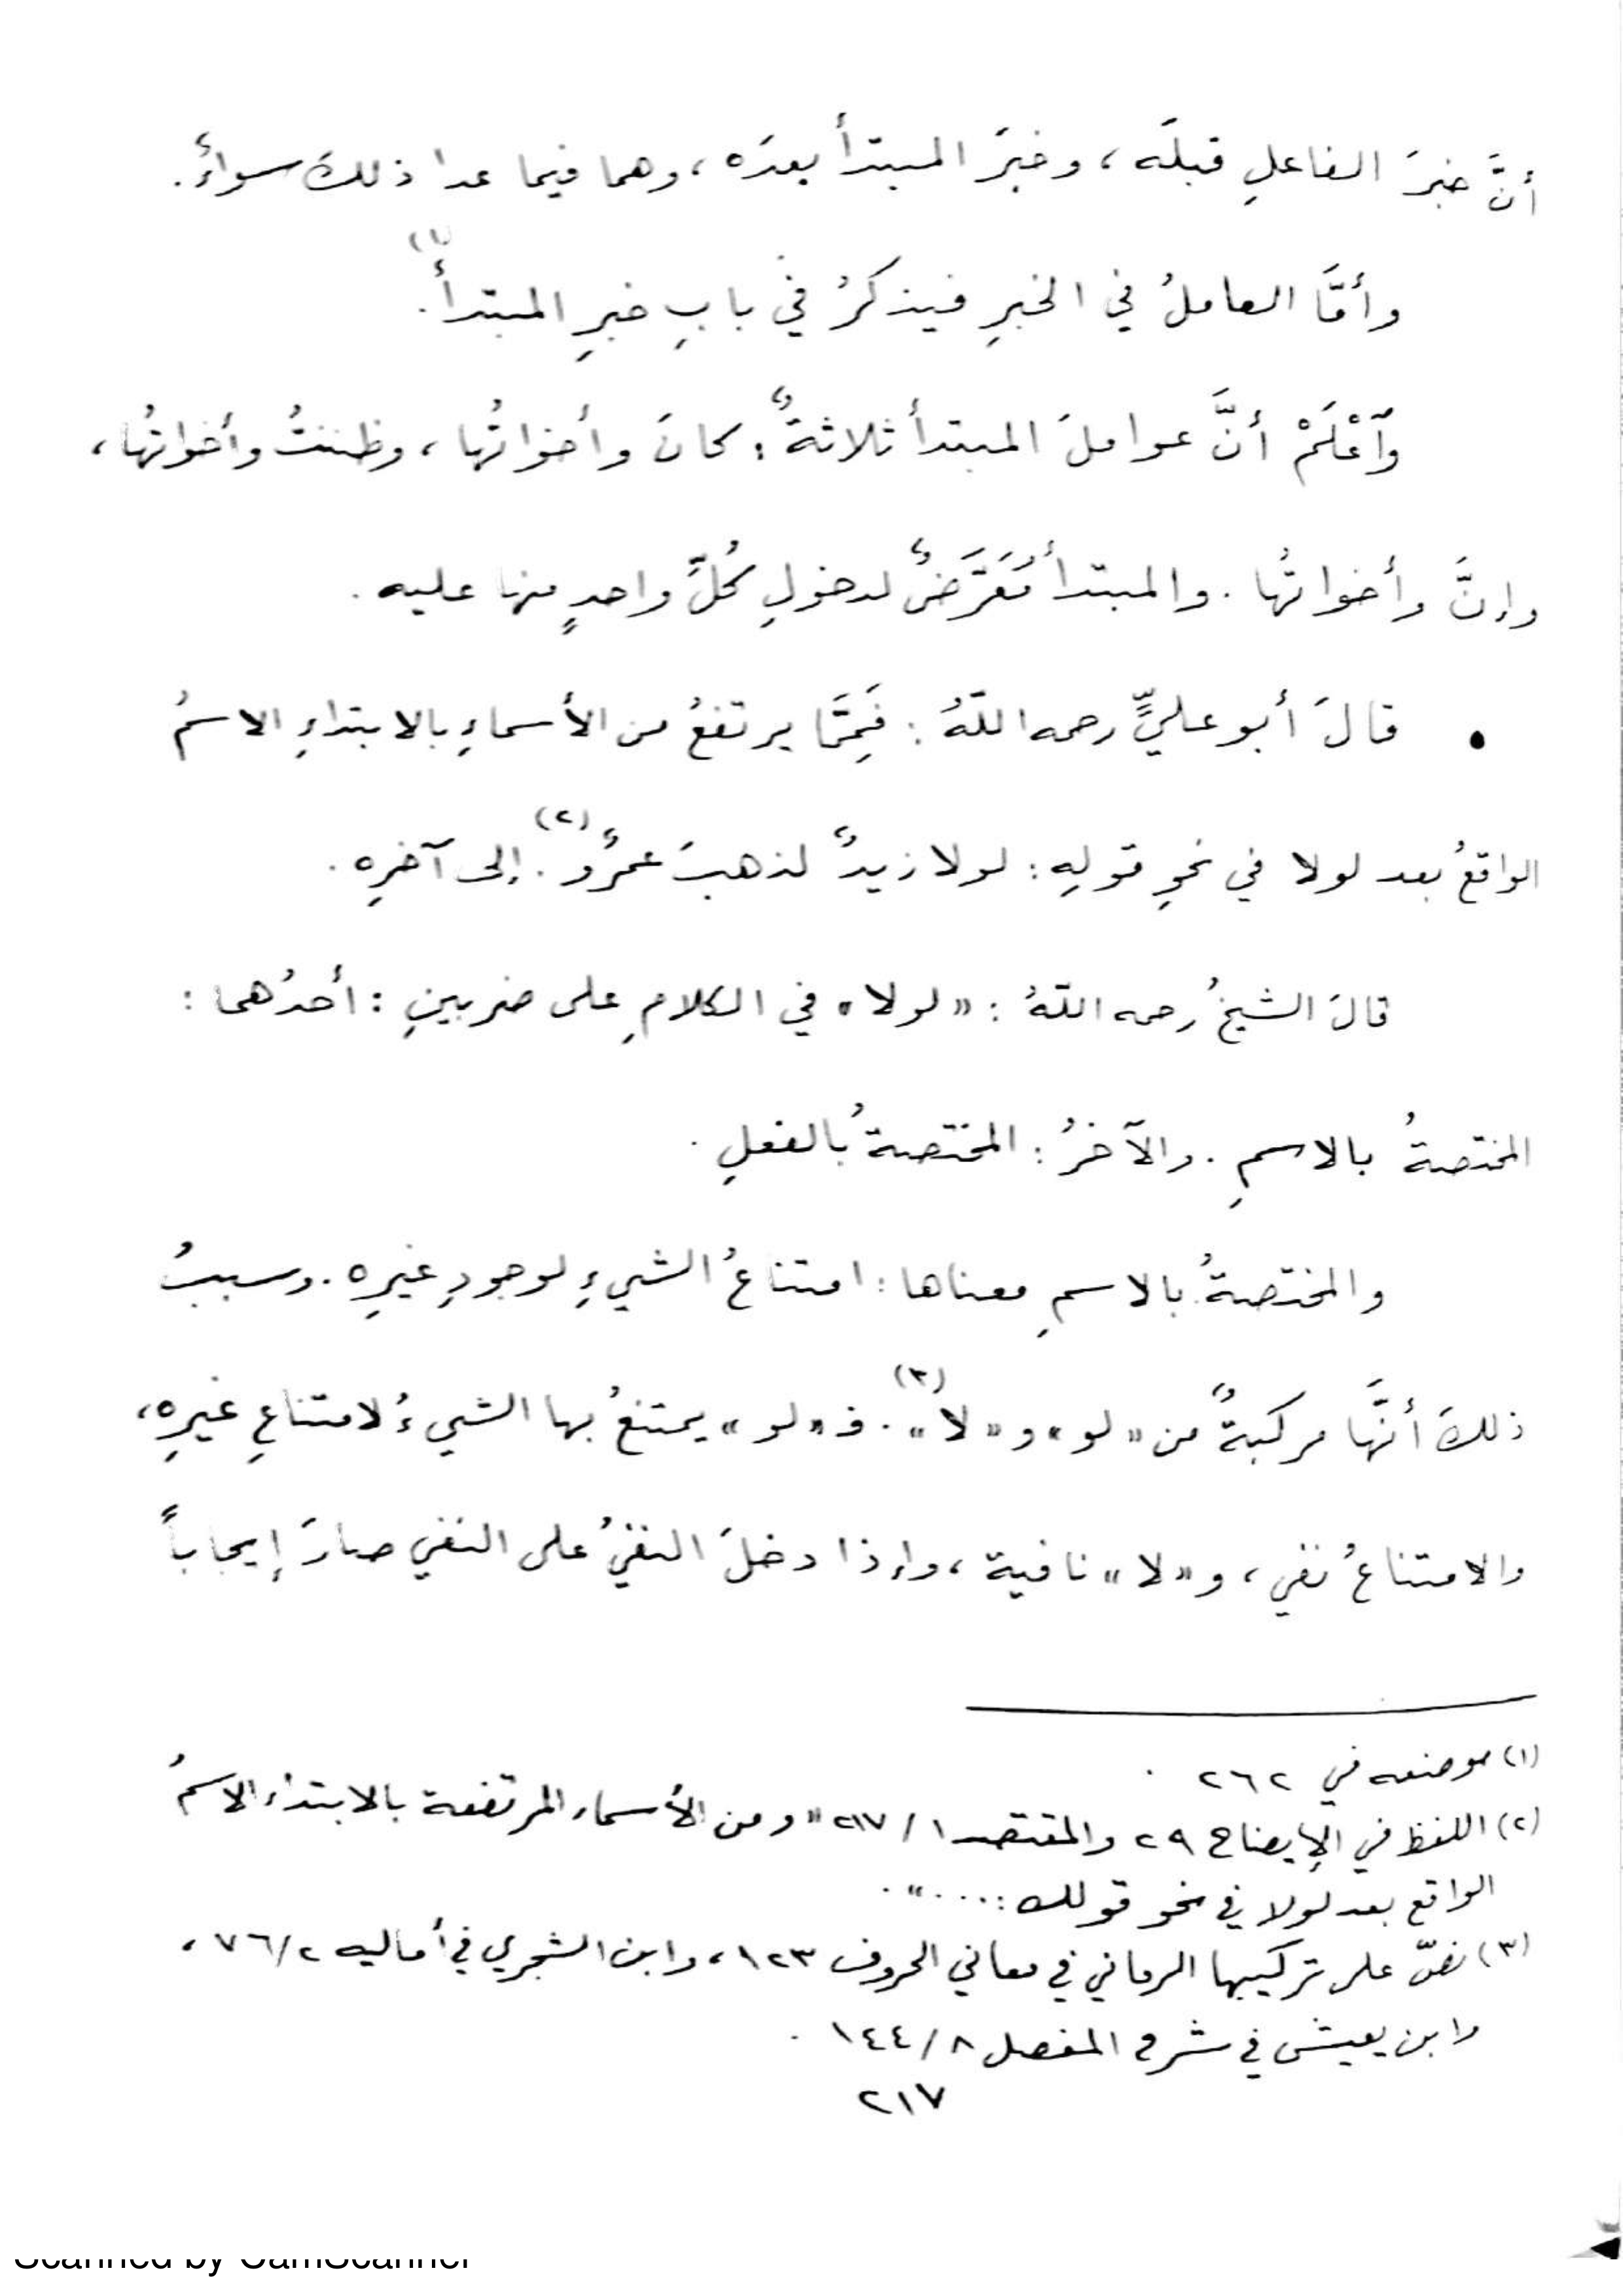 أنَّ خبرَ الفاعلِ قبلَه، وخبرَ المبتدأ بعدَه، وهما فيما عدا ذلكَ سواءٌ.
وأمَّا العاملُ في الخبرِ فيذكرُ في بابِ خبرِ المبتدأ(١).
وٱعْلَمْ أنَّ عواملَ المبتدأ ثلاثةٌ: كانَ وأخواتُها، وظننتُ وأخواتُها،
وإنَّ وأخواتُها. والمبتدأُ مُعَرَّضٌ لدخولِ كُلِّ واحدٍ منها عليه.
• قالَ أبو عليٍّ رحمه اللّهُ: فَمِمَّا يرتفعُ من الأسماءِ بالابتداءِ الاسمُ
الواقعُ بعد لولا في نحوِ قولِهِ: لولا زيدٌ لذهبَ عمرٌو(٢). إلى آخرِهِ.
قالَ الشيخُ رحمه اللّهُ: «لولا» في الكلامِ على ضربينِ: أحدُهما:
المختصةُ بالاسمِ. والآخرُ: المختصةُ بالفعلِ.
والمختصةُ بالاسمِ معناها: امتناعُ الشيءِ لوجودِ غيرِه. وسببُ
ذلكَ أنَّها مركبةٌ من «لو» و«لا»(٣). فـ«لو» يمتنعُ بها الشيءُ لامتناعِ غيرِهِ،
والامتناعُ نفي، و«لا» نافية، وإذا دخلَ النفيُ على النفي صارَ إيجاباً
(١) موضعه في ٢٦٢.
(٢) اللفظ في الإيضاح ٢٩ والمقتصد ١/ ٢١٧ «ومن الأسماء المرتفعة بالابتداء الاسمُ
الواقع بعد لولا في نحو قولك: ....».
(٣) نصّ على تركيبها الرماني في معاني الحروف ١٢٣، وابن الشجري في أماليه ٢/ ٧٦،
وابن يعيش في شرح المفصل ٨/ ١٤٤.
٢١٧
Scanned by CamScanner